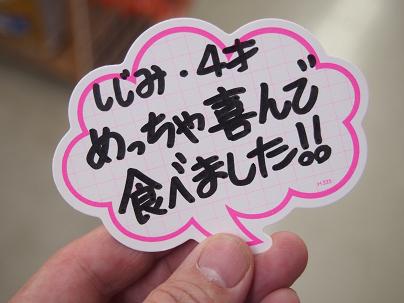 しじみ・4才
めっちゃ喜んで
食べました!!